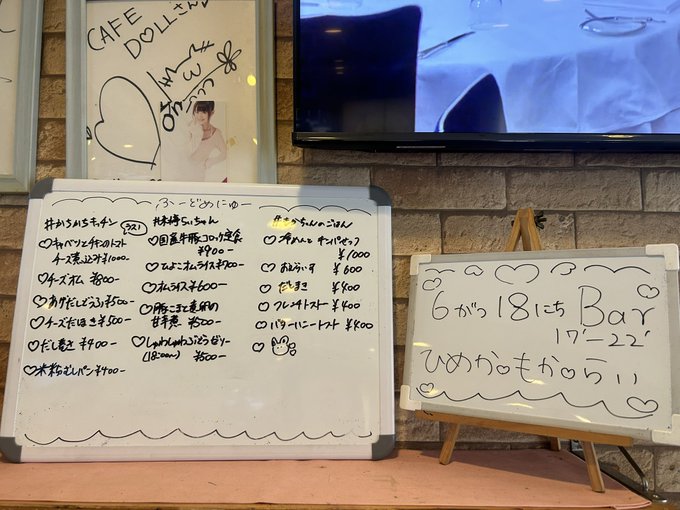 CAFE
DOLLさん♡
ふーどめにゅー
#かちかちキッチン
ラス1
♡キャベツとチキンのトマト
チーズ煮込み¥1000-
♡チーズオム ¥800-
♡あげだしどうふ¥500-
♡チーズだしまき ¥500-
♡だし巻き ¥400-
♡米粉むしパン¥400-
らいちゃん
♡国産牛豚コロッケ定食
¥900-
♡ひよこオムライス¥700-
♡オムライス¥600-
♡豚こまと
甘辛煮 ¥500-
♡しゅわしゅわぶどうゼリー
(18:00〜) ¥500-
ちゃんのごはん
♡冷めんと チャンパセット
¥1000
♡おむらいす ¥600
♡だしまき ¥400
♡フレンチトースト ¥400
♡バターハニートースト ¥400
♡
6がつ18にち Bar
17'-22'
ひめか♡もか♡らい